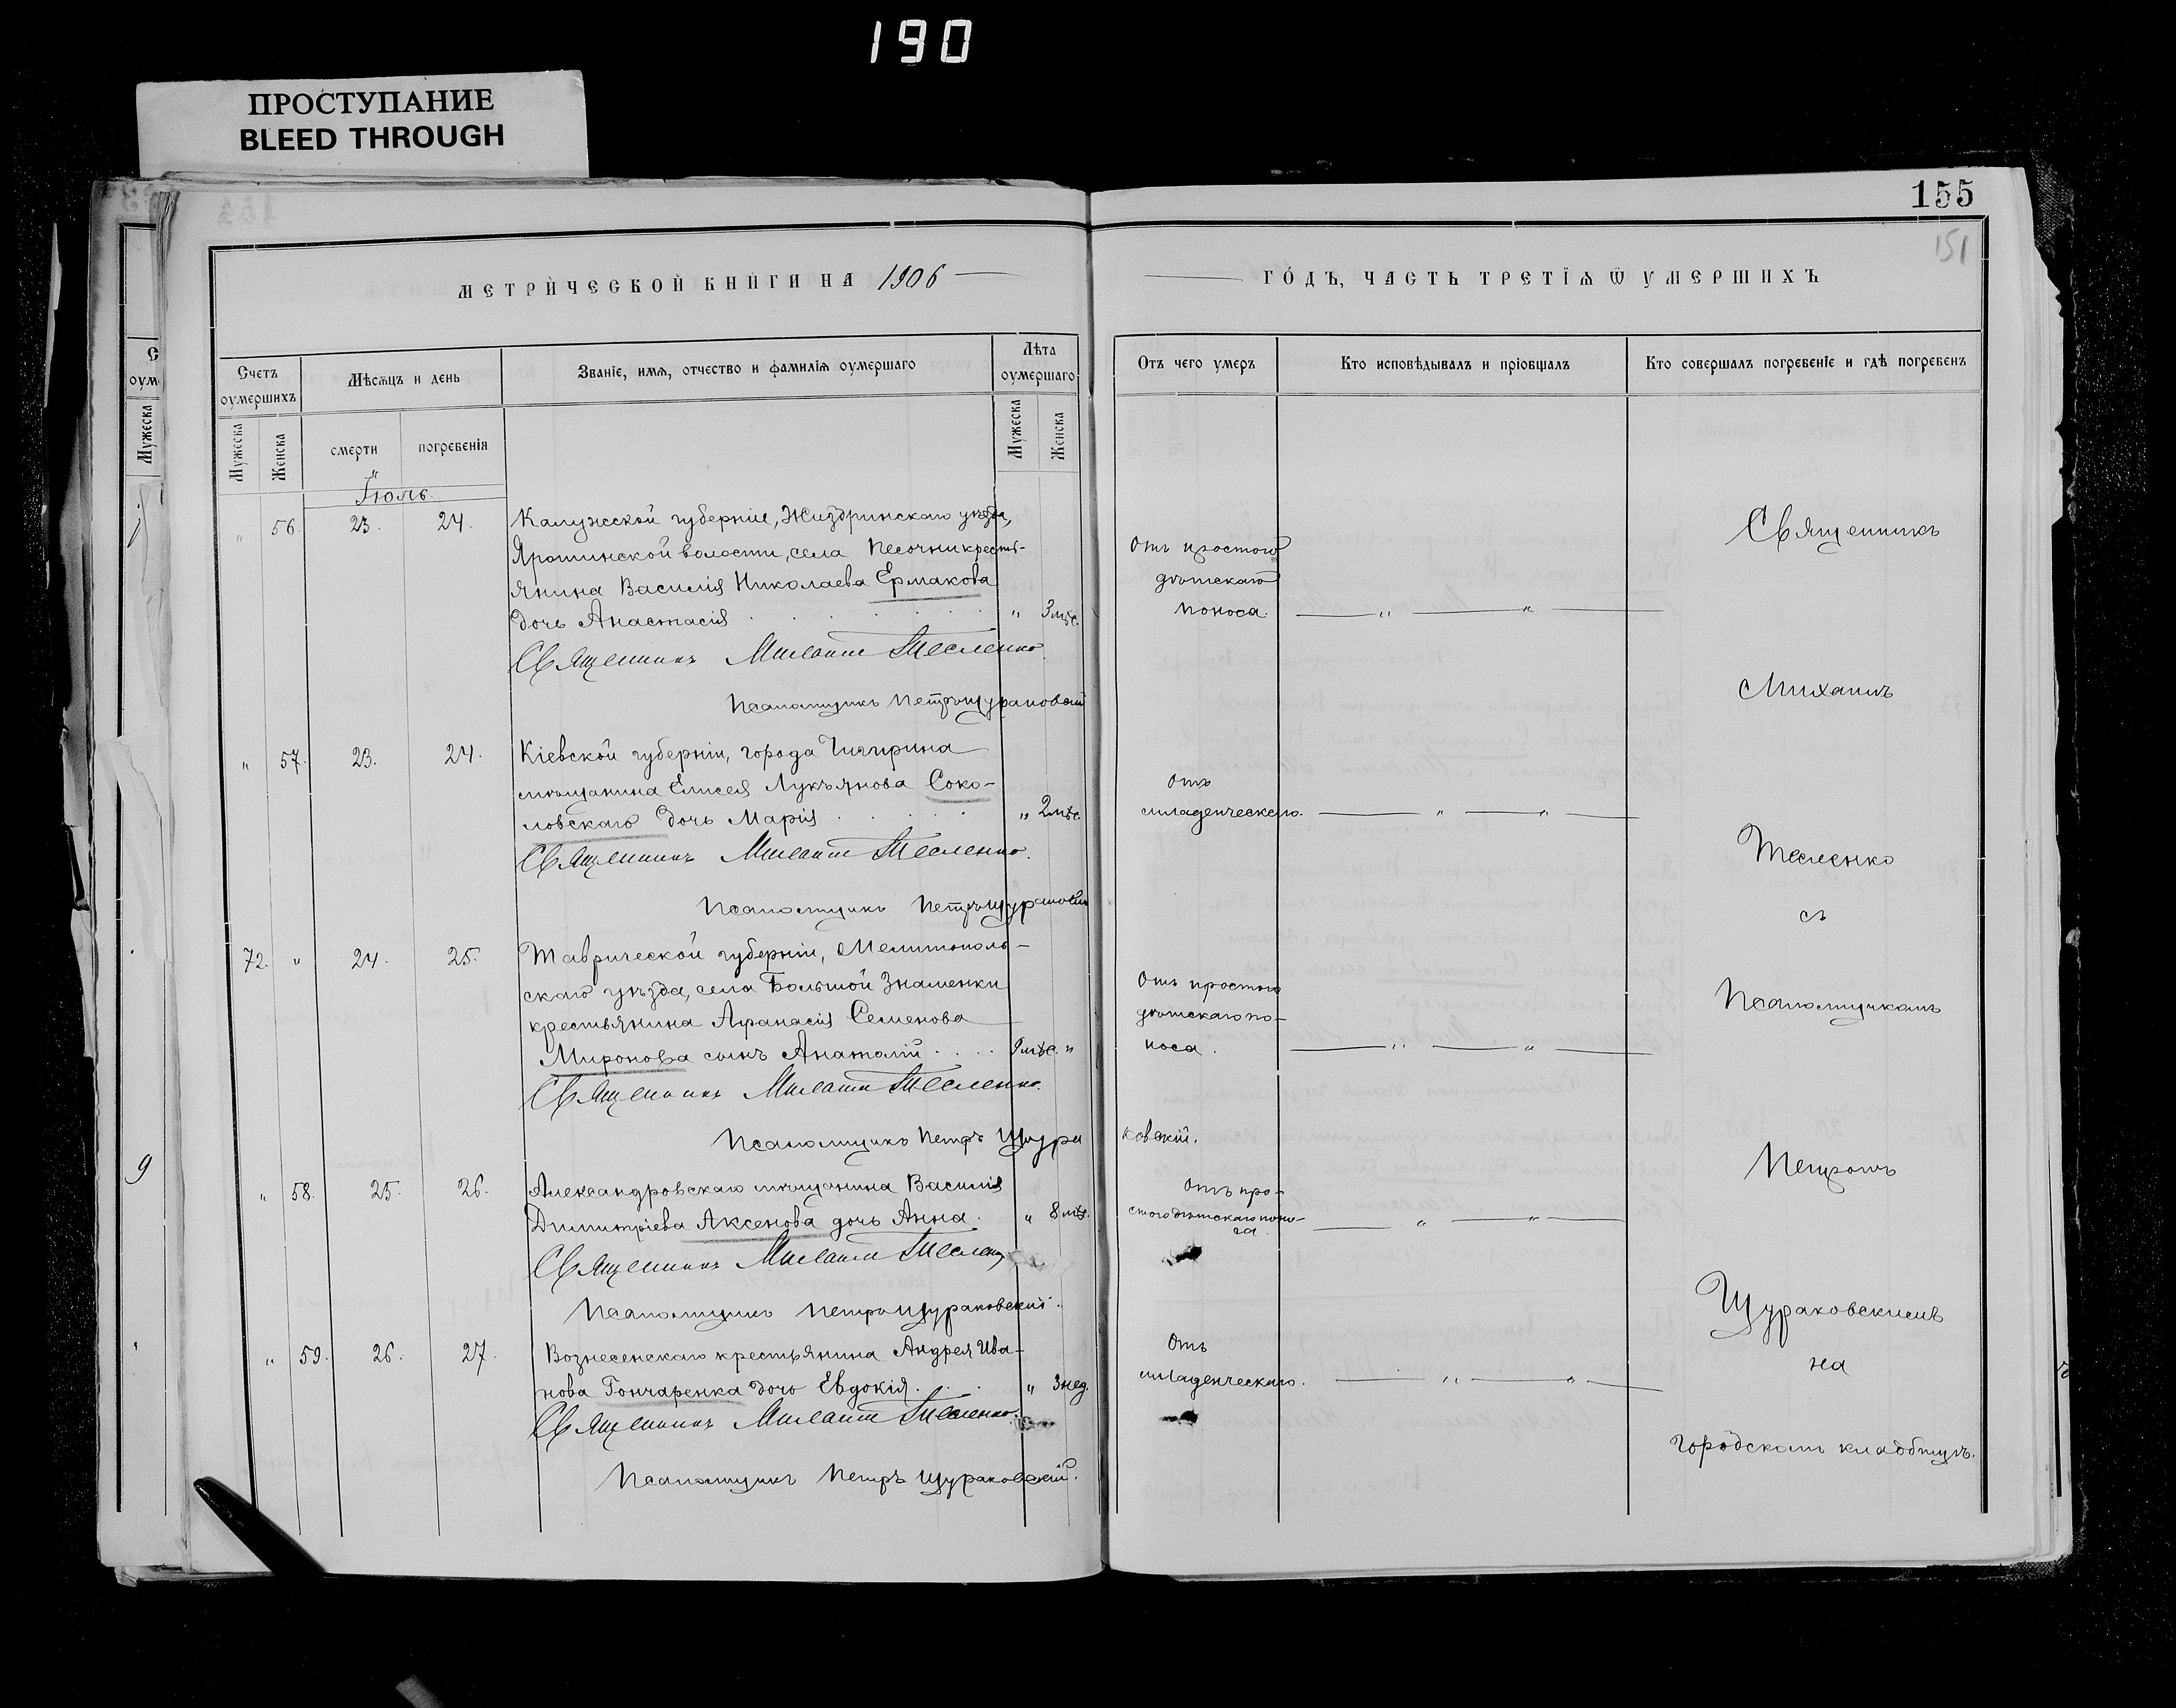 190
ПРОСТУПАНИЕ
BLEED THROUGH
155
151
МЕТРИЧЕСКОЙ КНИГИ НА 1906
ГОДЪ, ЧАСТЬ ТРЕТІЯ Ѿ УМЕРШИХЪ
Счетъ оумершихъ
Мѣсяцъ и день
Званіе, имя, отчество и фамилія оумершаго
Лѣта оумершаго
Отъ чего умеръ
Кто исповѣдывалъ и пріобщалъ
Кто совершалъ погребеніе и гдѣ погребенъ
Мужеска
Женска
смерти
погребенія
Мужеска
Женска
Іюль.
" 56. 23. 24. Калужской губерніи, Жиздринскаго уѣзда,
волости, села Песочни кресть-
янина Василія Николаева Ермакова
дочь Анастасія " 3 мѣс.
Отъ простого
дѣтскаго
поноса. " "
Священникъ Михаилъ Тесленко
Псаломщикъ Петръ Щураковскій
" 57. 23. 24. Кіевской губерніи, города Чигирина
мѣщанина Елисея Лукьянова Соко-
ловскаго дочь Марія " 2 мѣс.
Отъ
младенческаго. " "
Священникъ Михаилъ Тесленко.
Псаломщикъ Петръ Щураковскій
72. " 24. 25. Таврической губерніи, Мелитополь-
скаго уѣзда, села Большой Знаменки
крестьянина Афанасія Семенова
Миронова сынъ Анатолій 9 мѣс. "
Отъ простого
дѣтскаго по-
носа. " "
Священникъ Михаилъ Тесленко.
Псаломщикъ Петръ Щура
ковскій.
" 58. 25. 26. Александровскаго мѣщанина Василія
Димитріева Аксенова дочь Анна. " 8 мѣс.
Отъ про-
стого дѣтскаго поно-
са. " "
Священникъ Михаилъ Тесленко
Псаломщикъ Петръ Щураковскій.
" 59. 26. 27. Вознесенскаго крестьянина Андрея Ива-
нова Гончаренка дочь Евдокія. " 3 нед.
Отъ
младенческаго. " "
Священникъ Михаилъ Тесленко.
Псаломщикъ Петръ Щураковскій.
Священникъ
Михаилъ
Тесленко
съ
Псаломщикомъ
Петромъ
Щураковскимъ
на
городскомъ кладбищѣ.